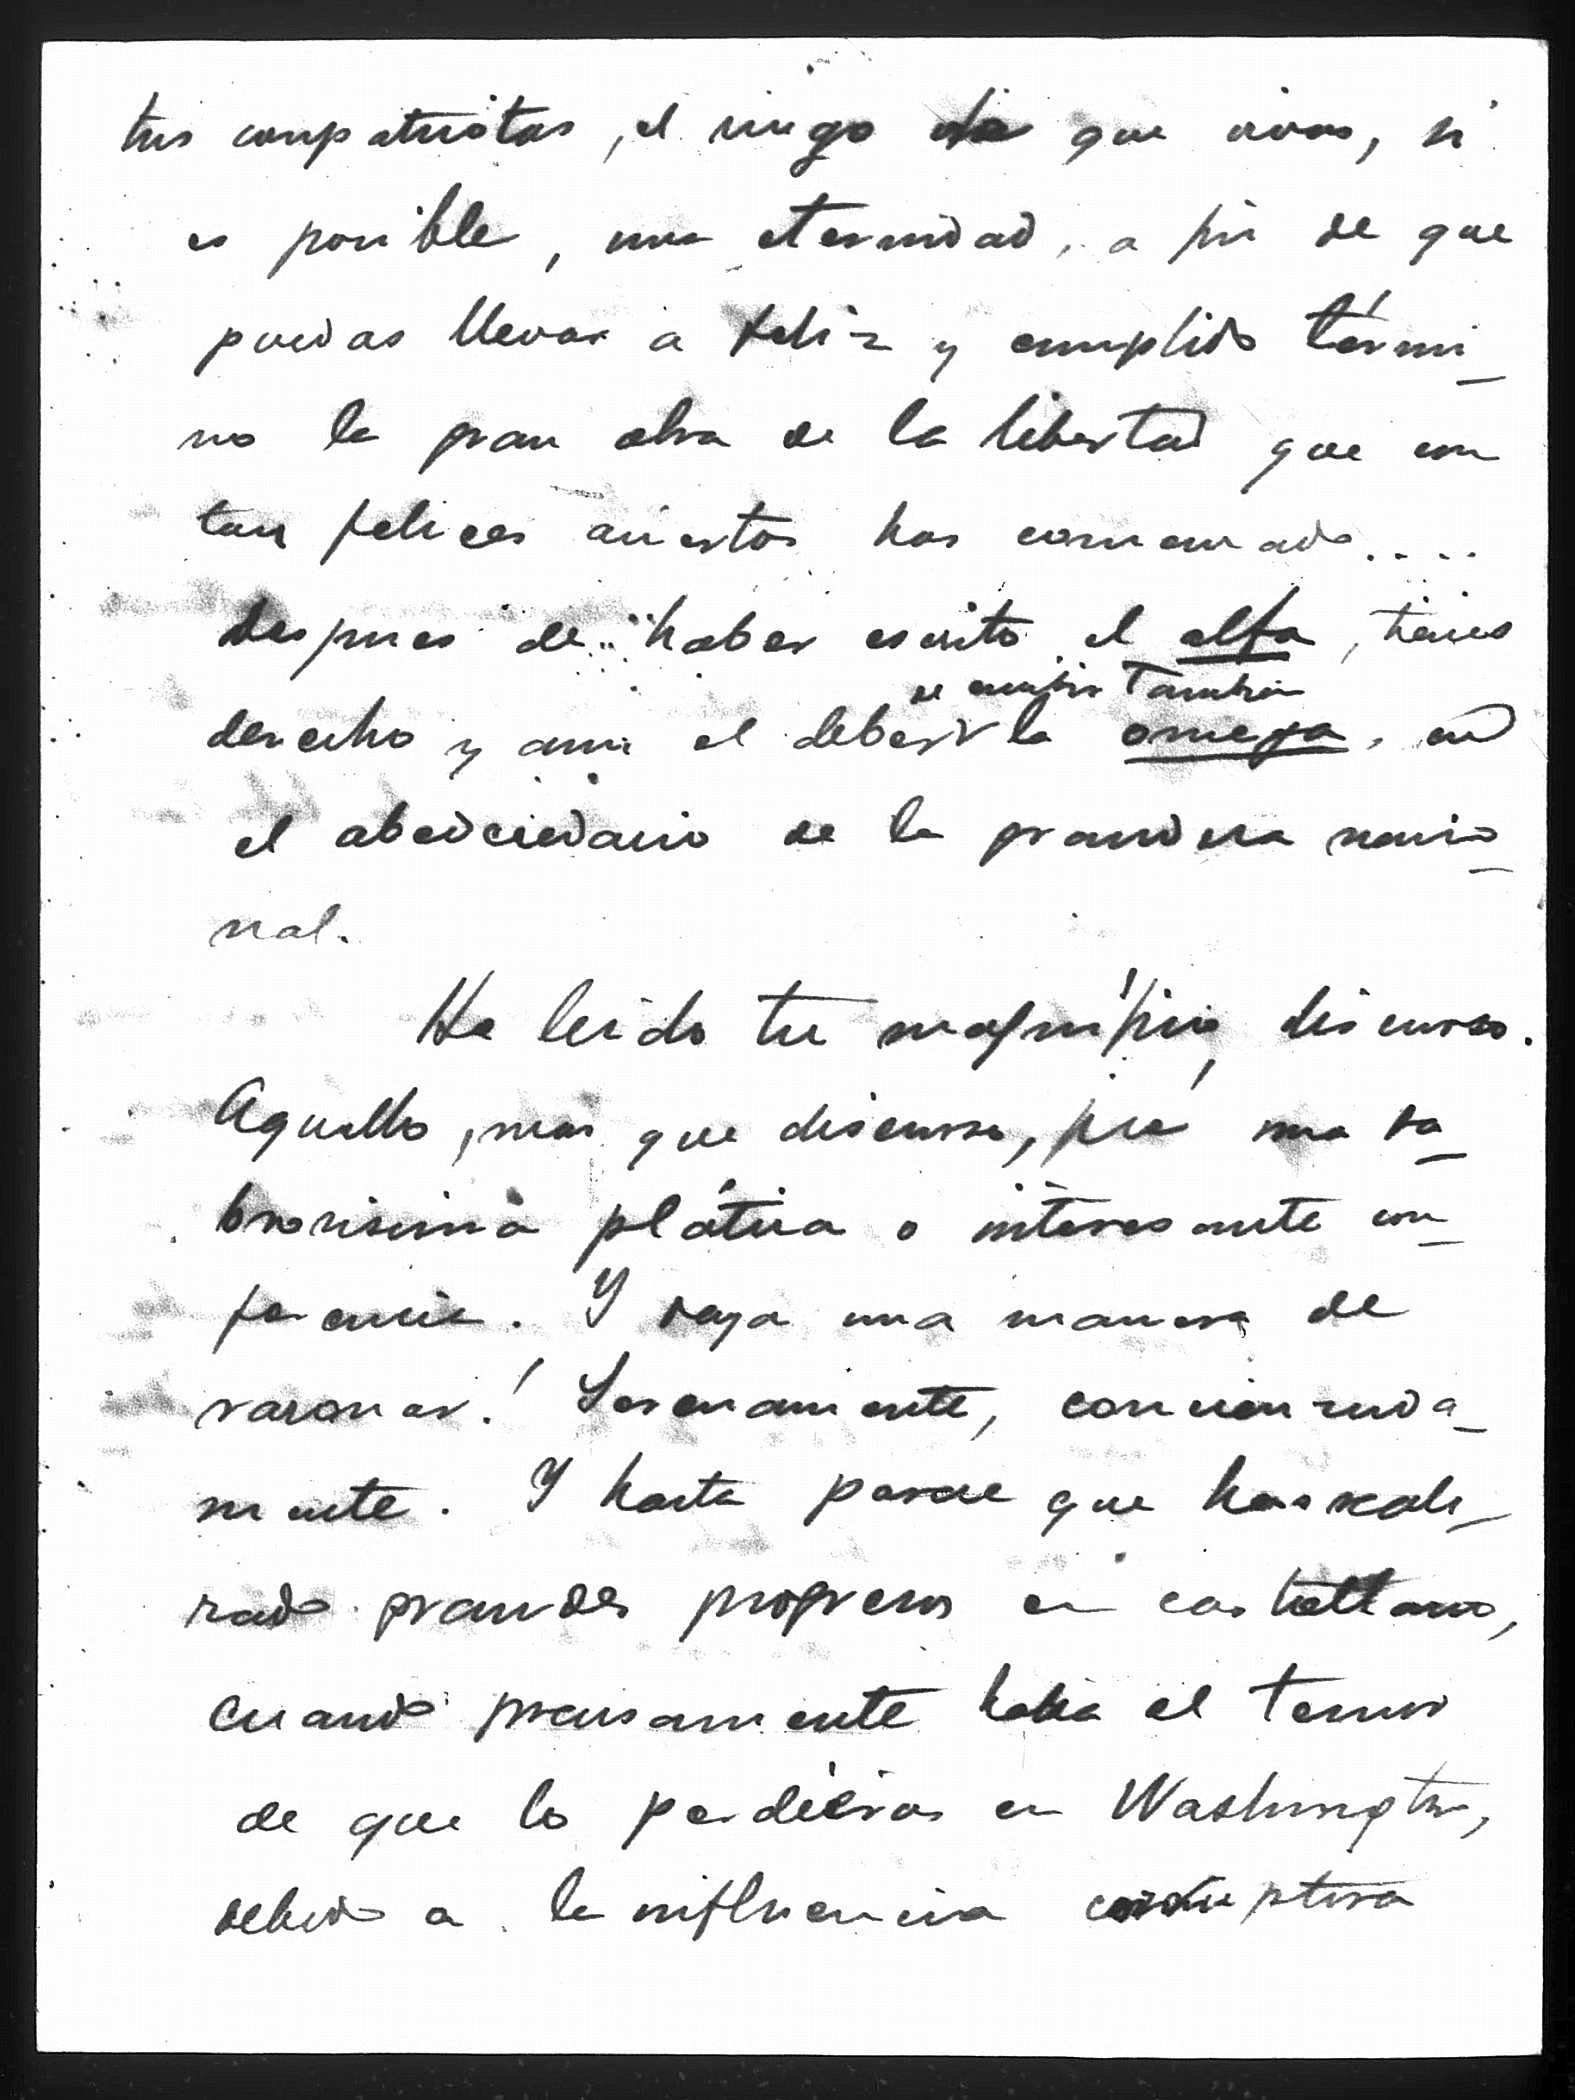 tus compatriotas, el ruego de que vivas, si
es posible, una eternidad, a fin de que
puedas llevar a feliz y cumplido térmi-
no la gran obra de la libertad que con
tan felices auertos has comenzado....
despues de haber escrito el alfa, tienes
de escribir también
derecho y aun el deber la omega, en
el abedcedario de la grandeza nacio-
nal.
He leido tu magnífico discurso.
Aquello, mas que discurso, fué una sa-
brosisima plática o interesante con-
ferencia. Y vaya una manera de
razonar! Serenamente, concienzuda-
mente. Y hasta parece que has reali-
zado grandes progresos en castellano,
cuando precisamente habia el temor
de que lo perdieras en Washington,
debido a la influencia corruptora